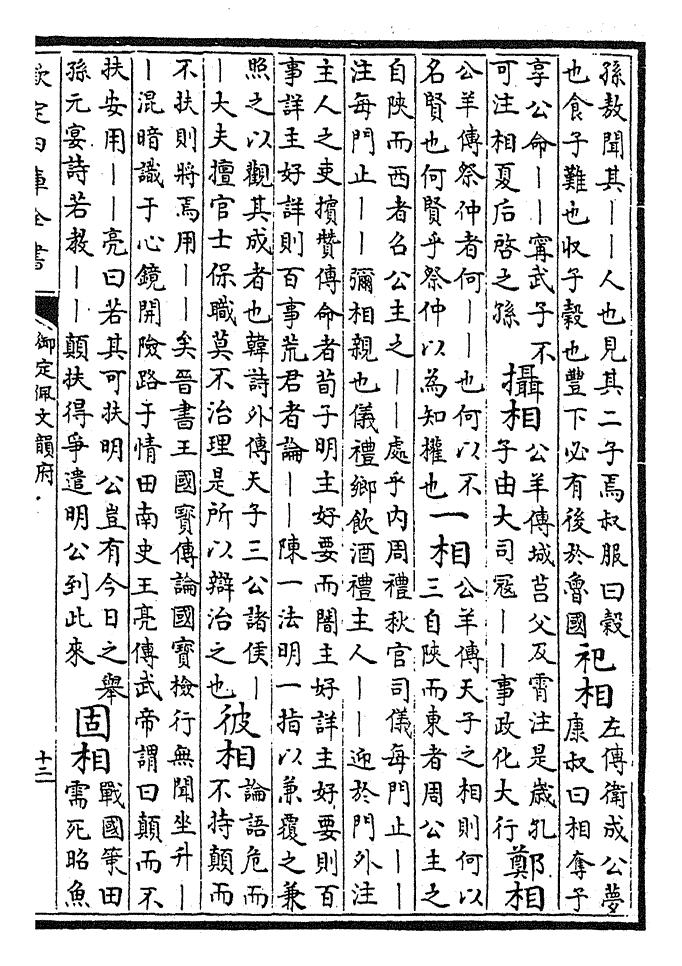 孫敖聞其——人也見其二子焉叔服曰榖
也食子難也収子榖也豐下必有後於魯國
祀相
左傳衛成公夢
康叔曰相奪子
享公命——甯武子不
可注相夏后啓之孫
攝相
公羊傳城莒父及霄注是歲孔
子由大司寇——事政化大行
鄭相
公羊傳祭仲者何——也何以不
名賢也何賢乎祭仲以為知權也
一相
公羊傳天子之相則何以
三自陝而東者周公主之
自陝而西者召公主之——處乎内周禮秋官司儀每門止——
注每門止——彌相親也儀禮鄉飲酒禮主人——迎於門外注
主人之吏擯贊傳命者荀子明主好要而闇主好詳主好要則百
事詳主好詳則百事荒君者論——陳一法明一指以兼覆之兼
照之以觀其成者也韓詩外傳天子三公諸侯—
—大夫擅官士保職莫不治理是所以辯治之也
彼相
論語危而
不持顛而
不扶則將焉用——矣晉書王國寳傳論國寳檢行無聞坐升—
—混暗識于心鏡開險路于情田南史王亮傳武帝謂曰顛而不
扶安用——亮曰若其可扶明公豈有今日之舉
孫元宴詩若教——顛扶得爭遣明公到此來
固相
戰國策田
需死昭魚
欽定四庫全書
御定佩文韻府
十二